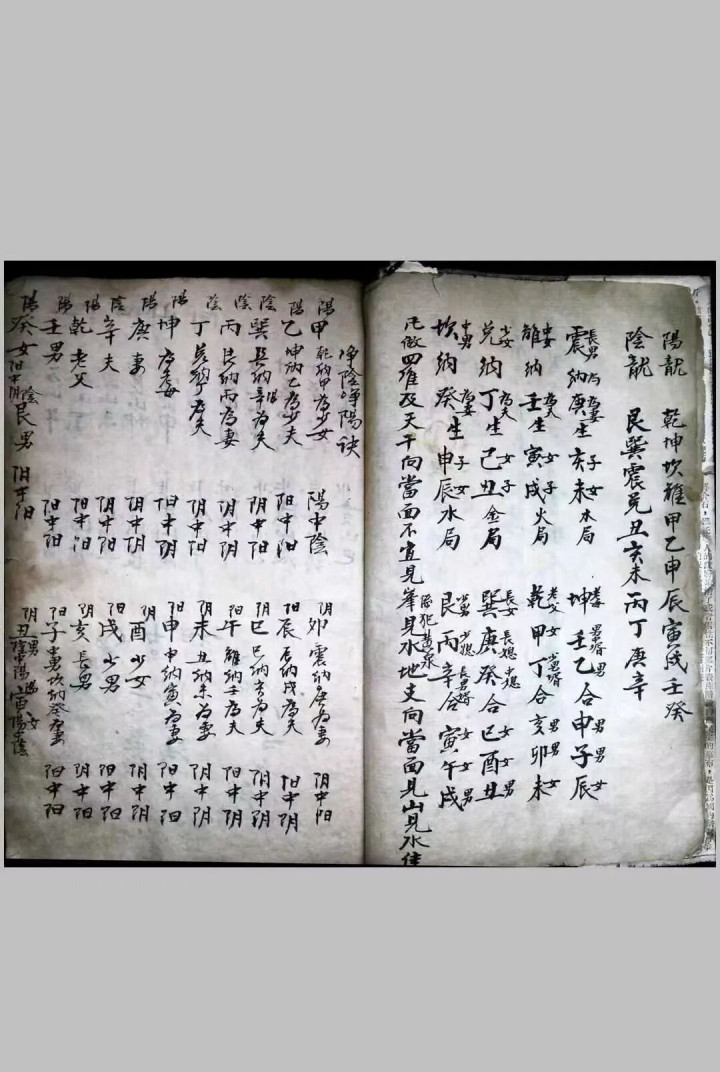 陽龍 乾坤坎離甲乙申辰寅戌壬癸
陰龍 艮巽震兌丑亥未丙丁庚辛
震納庚生亥未木局 坤壬乙合申子辰
長男 為妻 子 女 男 男 女
離納壬生寅戌火局 乾甲丁合亥卯未
為夫 女 子 老父 男 男 女
兌納丁生己丑金局 巽庚癸合巳酉丑
少女 為夫 女 子 長女 長媳 女 女 男
坎納癸生申辰水局 艮丙辛合寅午戌
中男 為妻 子 女 少男 少媳 女 女 男
凡做四維及天干向當面不宜見峯見水地支向當面見山見水佳
恐犯黃泉
淨陰淨陽訣
陽 甲 乾納甲為少女 陽中陰 阴 卯 震納庚為妻 阴中阳
陽 乙 坤納乙為少夫 阳中阳 阳 辰 辰納戌為夫 阳中阴
陰 巽 巽納辛為夫 阴中阳 阴 巳 巳納亥為夫 阴中阴
陰 丙 艮納丙為妻 阴中阴 阳 午 離納壬為夫 阳中阴
陰 丁 兌納丁為夫 阴中阳 阴 未 丑納未為妻 阴中阴
陽 坤 為母 阳中阴 阳 申 申納寅為妻 阳中阳
陽 庚 妻 阴中阴 阴 酉 少女 阴中阴
陰 辛 夫 阴中阳 阳 戌 少男 阳中阳
陽 乾 老父 阳中阳 阴 亥 長男 阴中阳
陽 壬 男 阳中阳 阳 子 中男坎納癸為妻 阳中阳
陽 癸 女 阳中阴 陰 艮 男 阴中阳 阴 丑 男 陰中陽 陽 寅 女 陽中陰